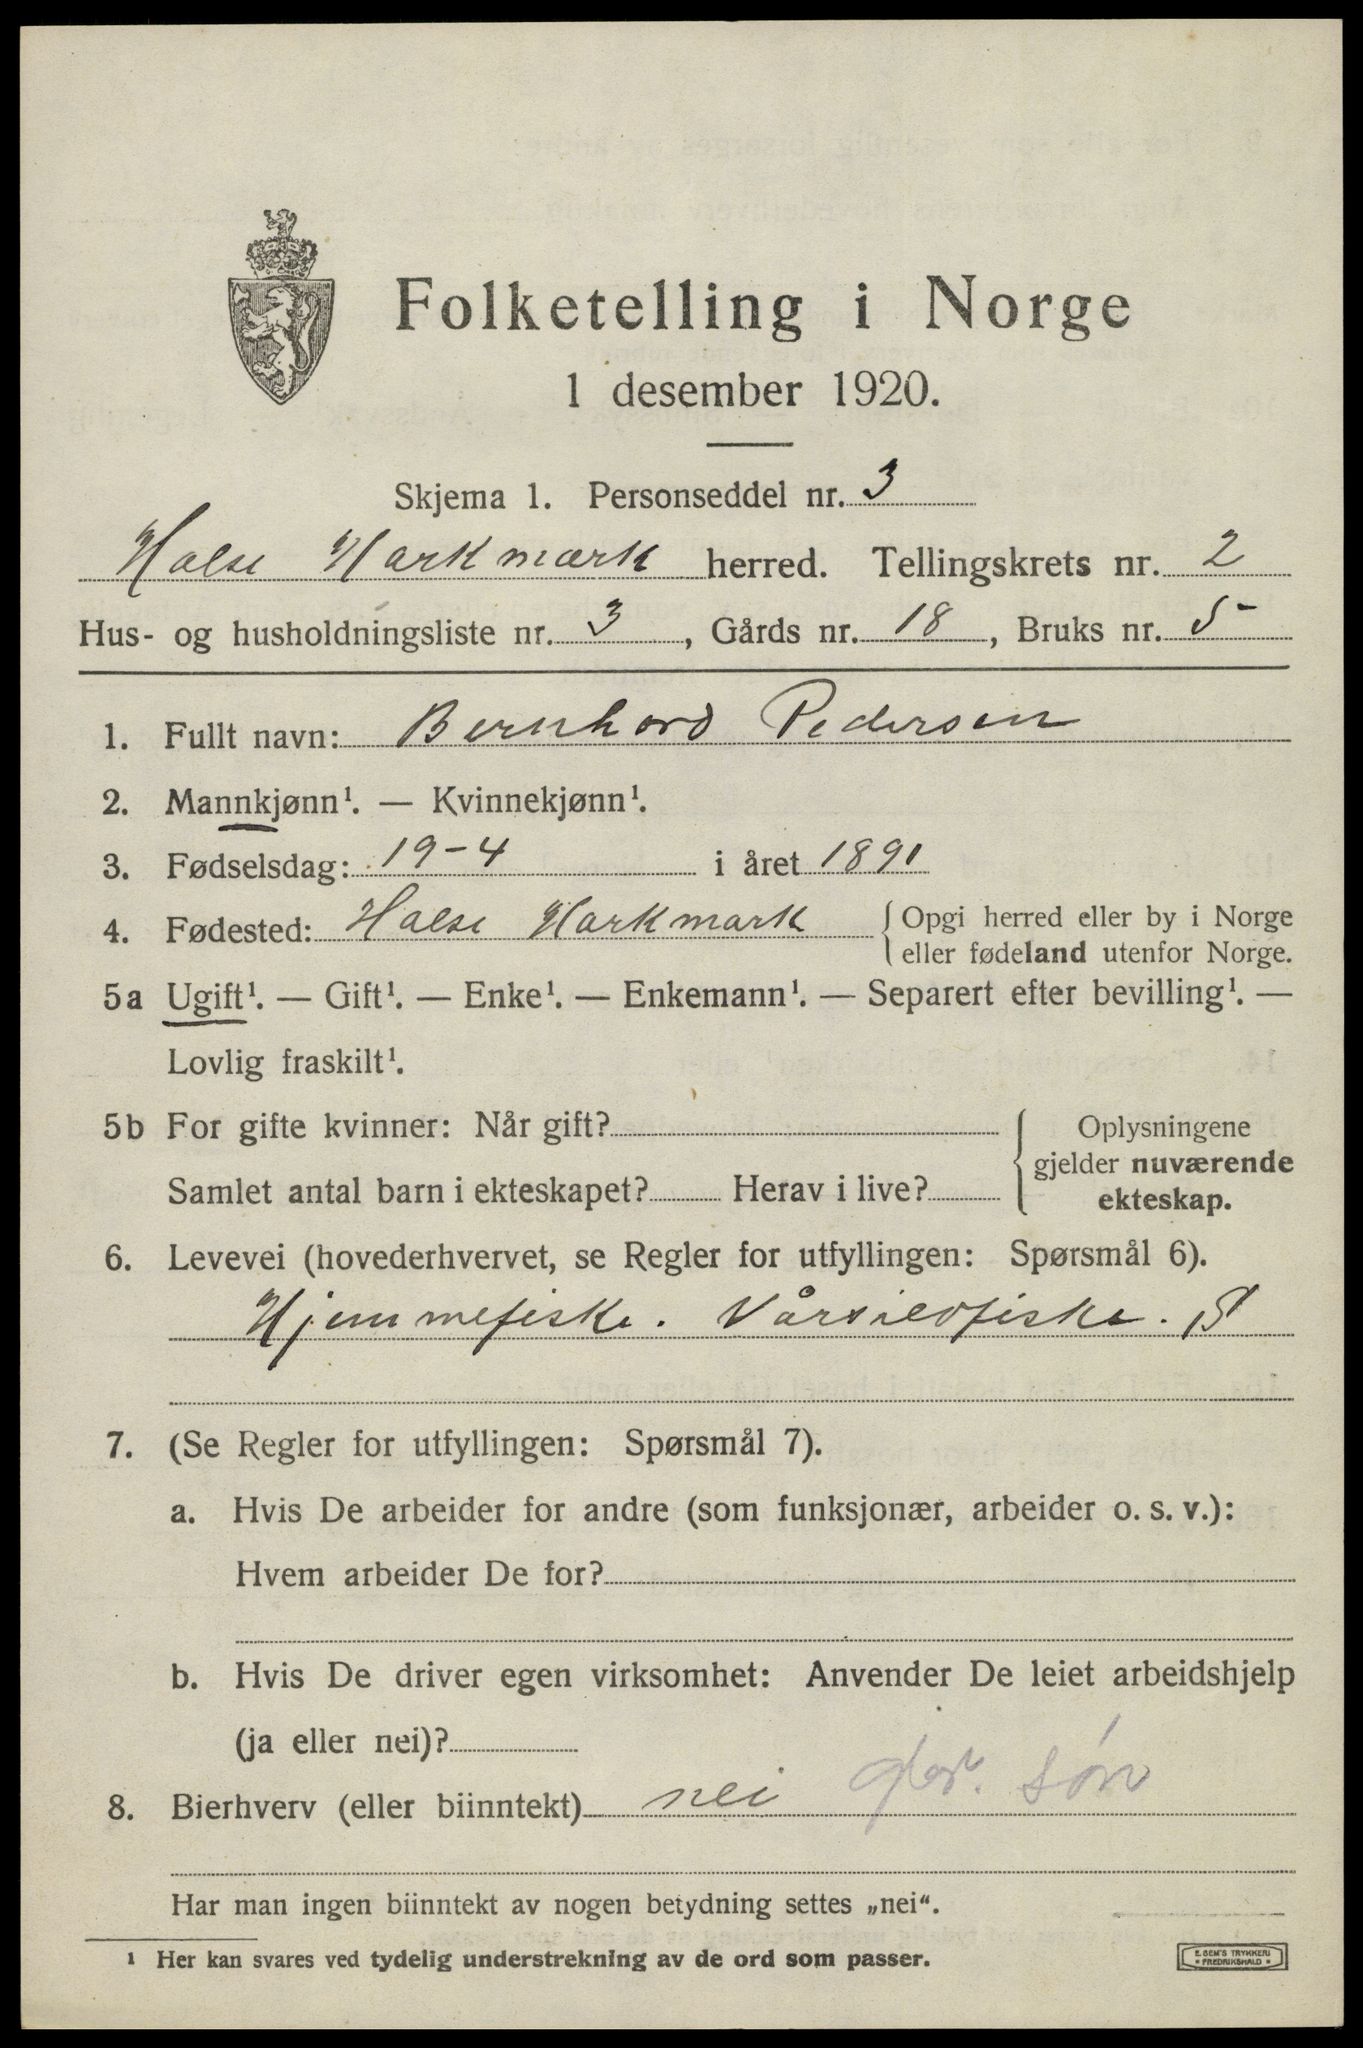 Folketelling i Norge
1 desember 1920.
Skjema 1. Personseddel nr. 3
Halse Harkmark herred. Tellingskrets nr. 2
Hus- og husholdningsliste nr. 3, Gårds nr. 18, Bruks nr. 5
1. Fullt navn: Bernhard Pedersen
2. Mannkjønn¹. — Kvinnekjønn¹.
3. Fødselsdag: 19-4 i året 1891
4. Fødested: Halse Harkmark { Opgi herred eller by i Norge
eller fødeland utenfor Norge.
5a Ugift¹. — Gift¹. — Enke¹. — Enkemann¹. — Separert efter bevilling¹. —
Lovlig fraskilt¹.
5b For gifte kvinner: Når gift? Oplysningene
gjelder nuværende
Samlet antal barn i ekteskapet? Herav i live?
ekteskap.
6. Levevei (hovederhvervet, se Regler for utfyllingen: Spørsmål 6).
Hjemmefiske. Vårsildfiske.
7. (Se Regler for utfyllingen: Spørsmål 7).
a. Hvis De arbeider for andre (som funksjonær, arbeider o. s. v.):
Hvem arbeider De for?
b. Hvis De driver egen virksomhet: Anvender De leiet arbeidshjelp
(ja eller nei)?
8. Bierhverv (eller biinntekt) nei søn
Har man ingen biinntekt av nogen betydning settes „nei“.
¹ Her kan svares ved tydelig understrekning av de ord som passer.
E. SEM'S TRYKKERI
* FREDRIKSHALD *